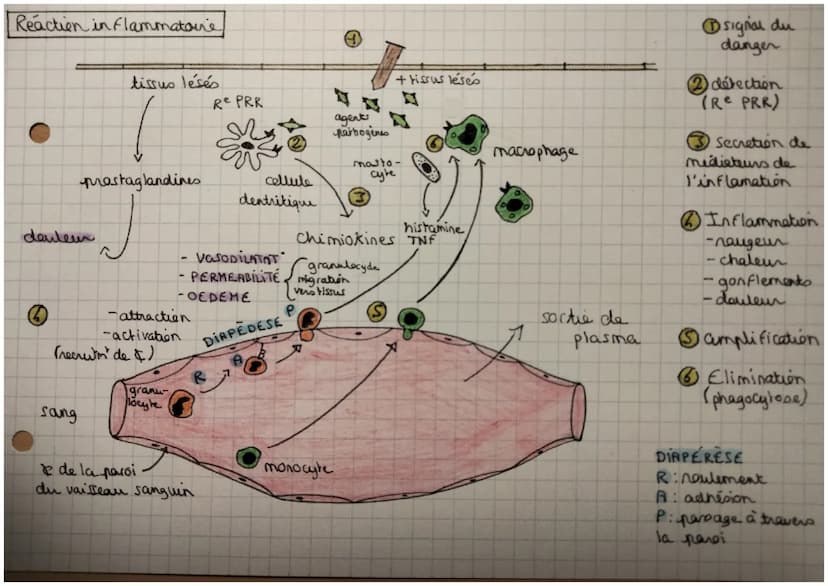 Réaction inflammatoire
1
+ tissus lésés
tissus lésés
Rᵉ PRR
agents
pathogènes
2
6
macrophage
masto-
cyte
prostaglandines
cellule
dentritique
3
douleur
chimiokines
histamine
TNF
- VASODILATAT°
- PERMEABILITÉ
- OEDEME
granulocyte
migration
vers tissus
4
- attraction
- activation
(recrutmᵗ de ¢)
DIAPÉDÈSE
P
5
sortie de
plasma
R
A
granu-
locyte
sang
monocyte
¢ de la paroi
du vaisseau sanguin
1 signal du
danger
2 détection
(Rᵉ PRR)
3 Secretion de
médiateurs de
l'inflamation
4 Inflammation
- rougeur
- chaleur
- gonflements
- douleur
5 amplification
6 Elimination
(phagocytose)
DIAPÉRÈSE
R : roulement
A : adhésion
P : passage à travers
la paroi